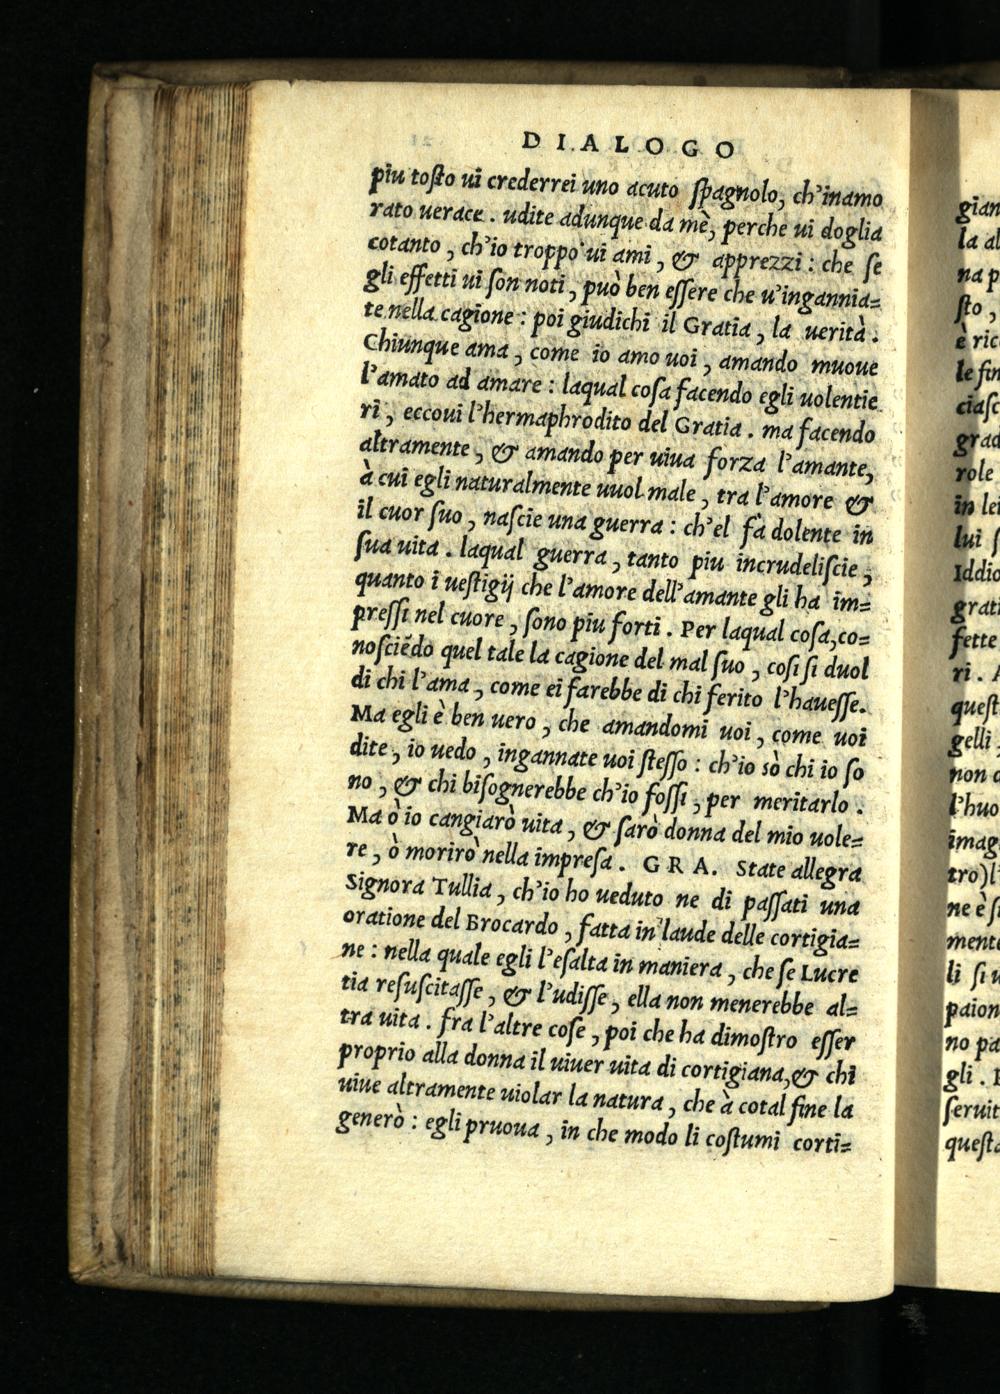 DIALOGO
piu tosto ui crederrei uno acuto spagnolo, ch'inamo
rato uerace. udite adunque da mè, perche ui doglia
cotanto, ch'io troppo ui ami, & apprezzi: che se
gli effetti ui son noti, può ben essere che u'ingannia=
te nella cagione: poi giudichi il Gratia, la uerità.
Chiunque ama, come io amo uoi, amando muoue
l'amato ad amare: laqual cosa facendo egli uolentie
ri, eccoui l'hermaphrodito del Gratia. ma facendo
altramente, & amando per uiua forza l'amante,
à cui egli naturalmente uuol male, tra l'amore &
il cuor suo, nascie una guerra: ch'el fà dolente in
sua uita. laqual guerra, tanto piu incrudeliscie,
quanto i uestigij che l'amore dell'amante gli ha im=
pressi nel cuore, sono piu forti. Per laqual cosa, co=
nosciēdo quel tale la cagione del mal suo, cosi si duol
di chi l'ama, come ei farebbe di chi ferito l'hauesse.
Ma egli è ben uero, che amandomi uoi, come uoi
dite, io uedo, ingannate uoi stesso: ch'io sò chi io so
no, & chi bisognerebbe ch'io fossi, per meritarlo.
Ma ò io cangiarò uita, & sarò donna del mio uole=
re, ò morirò nella impresa. GRA. State allegra
Signora Tullia, ch'io ho ueduto ne di passati una
oratione del Brocardo, fatta in laude delle cortigia=
ne: nella quale egli l'esalta in maniera, che se Lucre
tia resuscitasse, & l'udisse, ella non menerebbe al=
tra uita. fra l'altre cose, poi che ha dimostro esser
proprio alla donna il uiuer uita di cortigiana, & chi
uiue altramente uiolar la natura, che à cotal fine la
generò: egli pruoua, in che modo li costumi corti=
gian
la al
na p
sto,
è ric
le fin
ciasc
grad
role
in lei
lui s
Iddio
grati
fette
ri. A
quest
gelli,
non
l'huo
imag
tro) l'
ne è si
mente
li si u
paion
no pa
gli.
seruit
questa